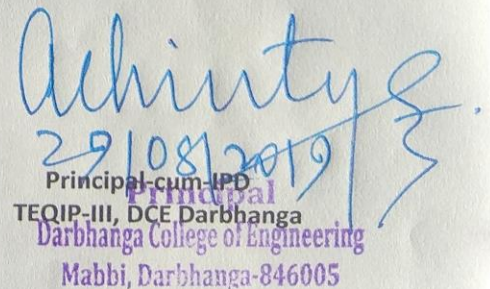 Achinty
29/08/2019
Principal-cum-IPD
Principal
TEQIP-III, DCE Darbhanga
Darbhanga College of Engineering
Mabbi, Darbhanga-846005